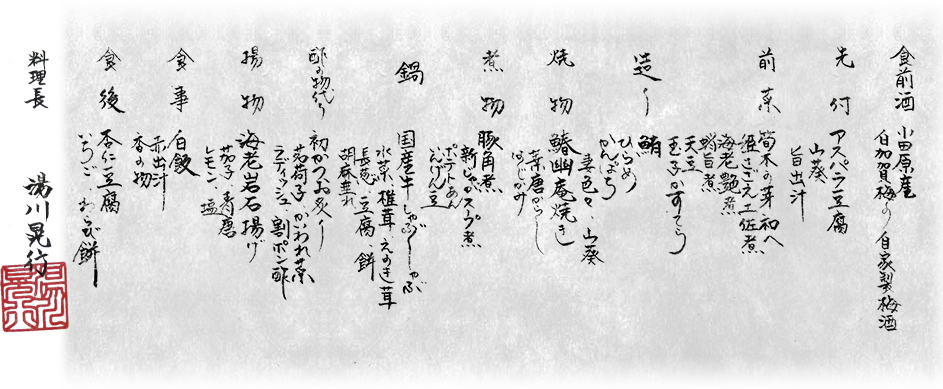 食前酒 小田原産
白加賀梅の自家製梅酒
先付 アスパラ豆腐
山葵
旨出汁
前菜 筍木の芽和へ
姫さざえ土佐煮
海老艶煮
蛸旨煮
天豆
玉子かすてら
造り 鮪
ひらめ
かんぱち
妻色々、山葵
焼物 鰆幽庵焼き
葉唐がらし
はじかみ
煮物 豚角煮
新じゃがスープ煮
ポテトあん
いんげん豆
鍋 国産牛しゃぶしゃぶ
水菜、椎茸、えのき茸
長葱、豆腐、餅
胡麻垂れ
酢の物代り 初かつお炙り
茗荷子、かいわれ菜
ラディッシュ、割ポン酢
揚物 海老岩石揚げ
茄子、青唐
レモン、塩
食事 白飯
赤出汁
香の物
食後 杏仁豆腐
いちご、わらび餅
料理長 湯川晃行